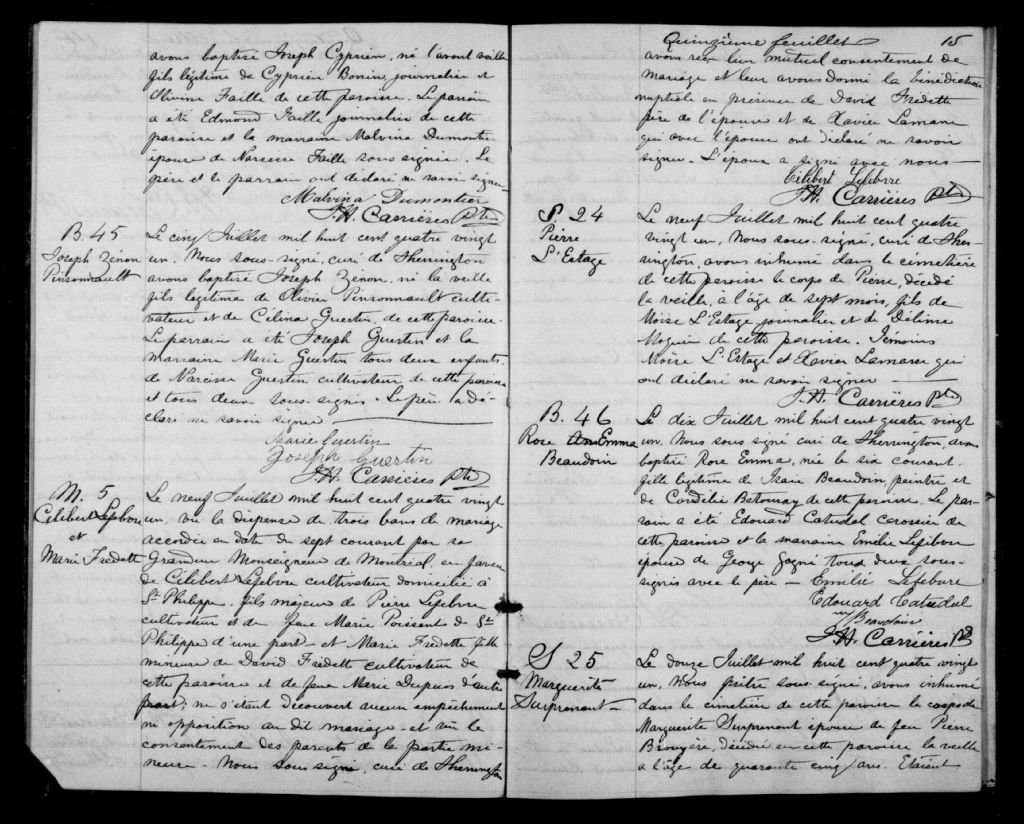 avons baptisé Joseph Cyprien, né l'avant veille
fils légitime de Cyprien Bonin, journalier et
Olivine Faille de cette paroisse. Le parrain
a été Edmond Faille journalier de cette
paroisse et la marraine Malvina Dumontier
épouse de Narcisse Faille sous signée. Le
père et le parrain ont déclaré ne savoir signer
Malvina Dumontier
J.H. Carrières Ptre
B. 45
Joseph Zénon
Pinsonnault
Le cinq Juillet mil huit cent quatre vingt
un. Nous sous-signé, curé de Sherrington
avons baptisé Joseph Zénon, né la veille
fils légitime de Olivier Pinsonnault culti-
vateur et de Célina Guertin, de cette paroisse.
Le parrain a été Joseph Guertin et la
marraine Marie Guertin tous deux enfants
de Narcisse Guertin cultivateur de cette paroisse
et tous deux sous-signés. Le père a dé-
claré ne savoir signer
Marie Guertin
Joseph Guertin
J.H. Carrières Ptre
M. 5
Cilibert Lefebvre
et
Marie Fredette
Le neuf Juillet mil huit cent quatre vingt
un, vu la dispense de trois bans de mariage
accordée en date du sept courant par sa
Grandeur Monseigneur de Montréal, en faveur
de Cilibert Lefebvre cultivateur domicilié à
St Philippe, fils majeur de Pierre Lefebvre
cultivateur et de feue Marie Poissant de St
Philippe d'une part - et Marie Fredette fille
mineure de David Fredette cultivateur de
cette paroisse et de feue Marie Dupuis d'autre
part; ne s'étant découvert aucun empêchement
ni opposition au dit mariage - et vu le
consentement des parents de la partie mi-
neure - Nous sous signé, curé de Sherrington
Quinzième feuillet 15
avons reçu leur mutuel consentement de
mariage et leur avons donné la bénédiction
nuptiale en présence de David Fredette
père de l'épouse et de Xavier Lamarre
qui avec l'épouse ont déclaré ne savoir
signer - L'époux a signé avec nous
Cilibert Lefebvre
J.H. Carrières Ptre
S. 24
Pierre
L'Estage
Le neuf Juillet mil huit cent quatre
vingt un, Nous sous-signé, curé de Sher-
rington, avons inhumé dans le cimetière
de cette paroisse le corps de Pierre, décédé
la veille, à l'âge de sept mois, fils de
Moïse L'Estage journalier et de Délima
de cette paroisse. Témoins
Moïse L'Estage et Xavier Lamarre qui
ont déclaré ne savoir signer
J.H. Carrières Ptre
B. 46
Rose Emma
Beaudoin
Le dix Juillet mil huit cent quatre vingt
un. Nous sous signé curé de Sherrington, avons
baptisé Rose Emma, née le six courant.
fille légitime de Isaie Beaudoin, peintre et
de Cordélie Betournay de cette paroisse. Le par-
rain a été Edouard Catudal de
cette paroisse et la marraine Emélie Lefebvre
épouse de George Gagné tous deux sous-
signés avec le père - Emélie Lefebvre
Edouard Catudal
J.H. Carrières Ptre
S 25
Marguerite
Surprenant
Le douze Juillet mil huit cent quatre vingt
un, Nous prêtre sous-signé, avons inhumé
dans le cimetière de cette paroisse le corps de
Marguerite Surprenant épouse de feu Pierre
Brouyère, décédée en cette paroisse la veille
a l'âge de quarante cinq ans. Etaient